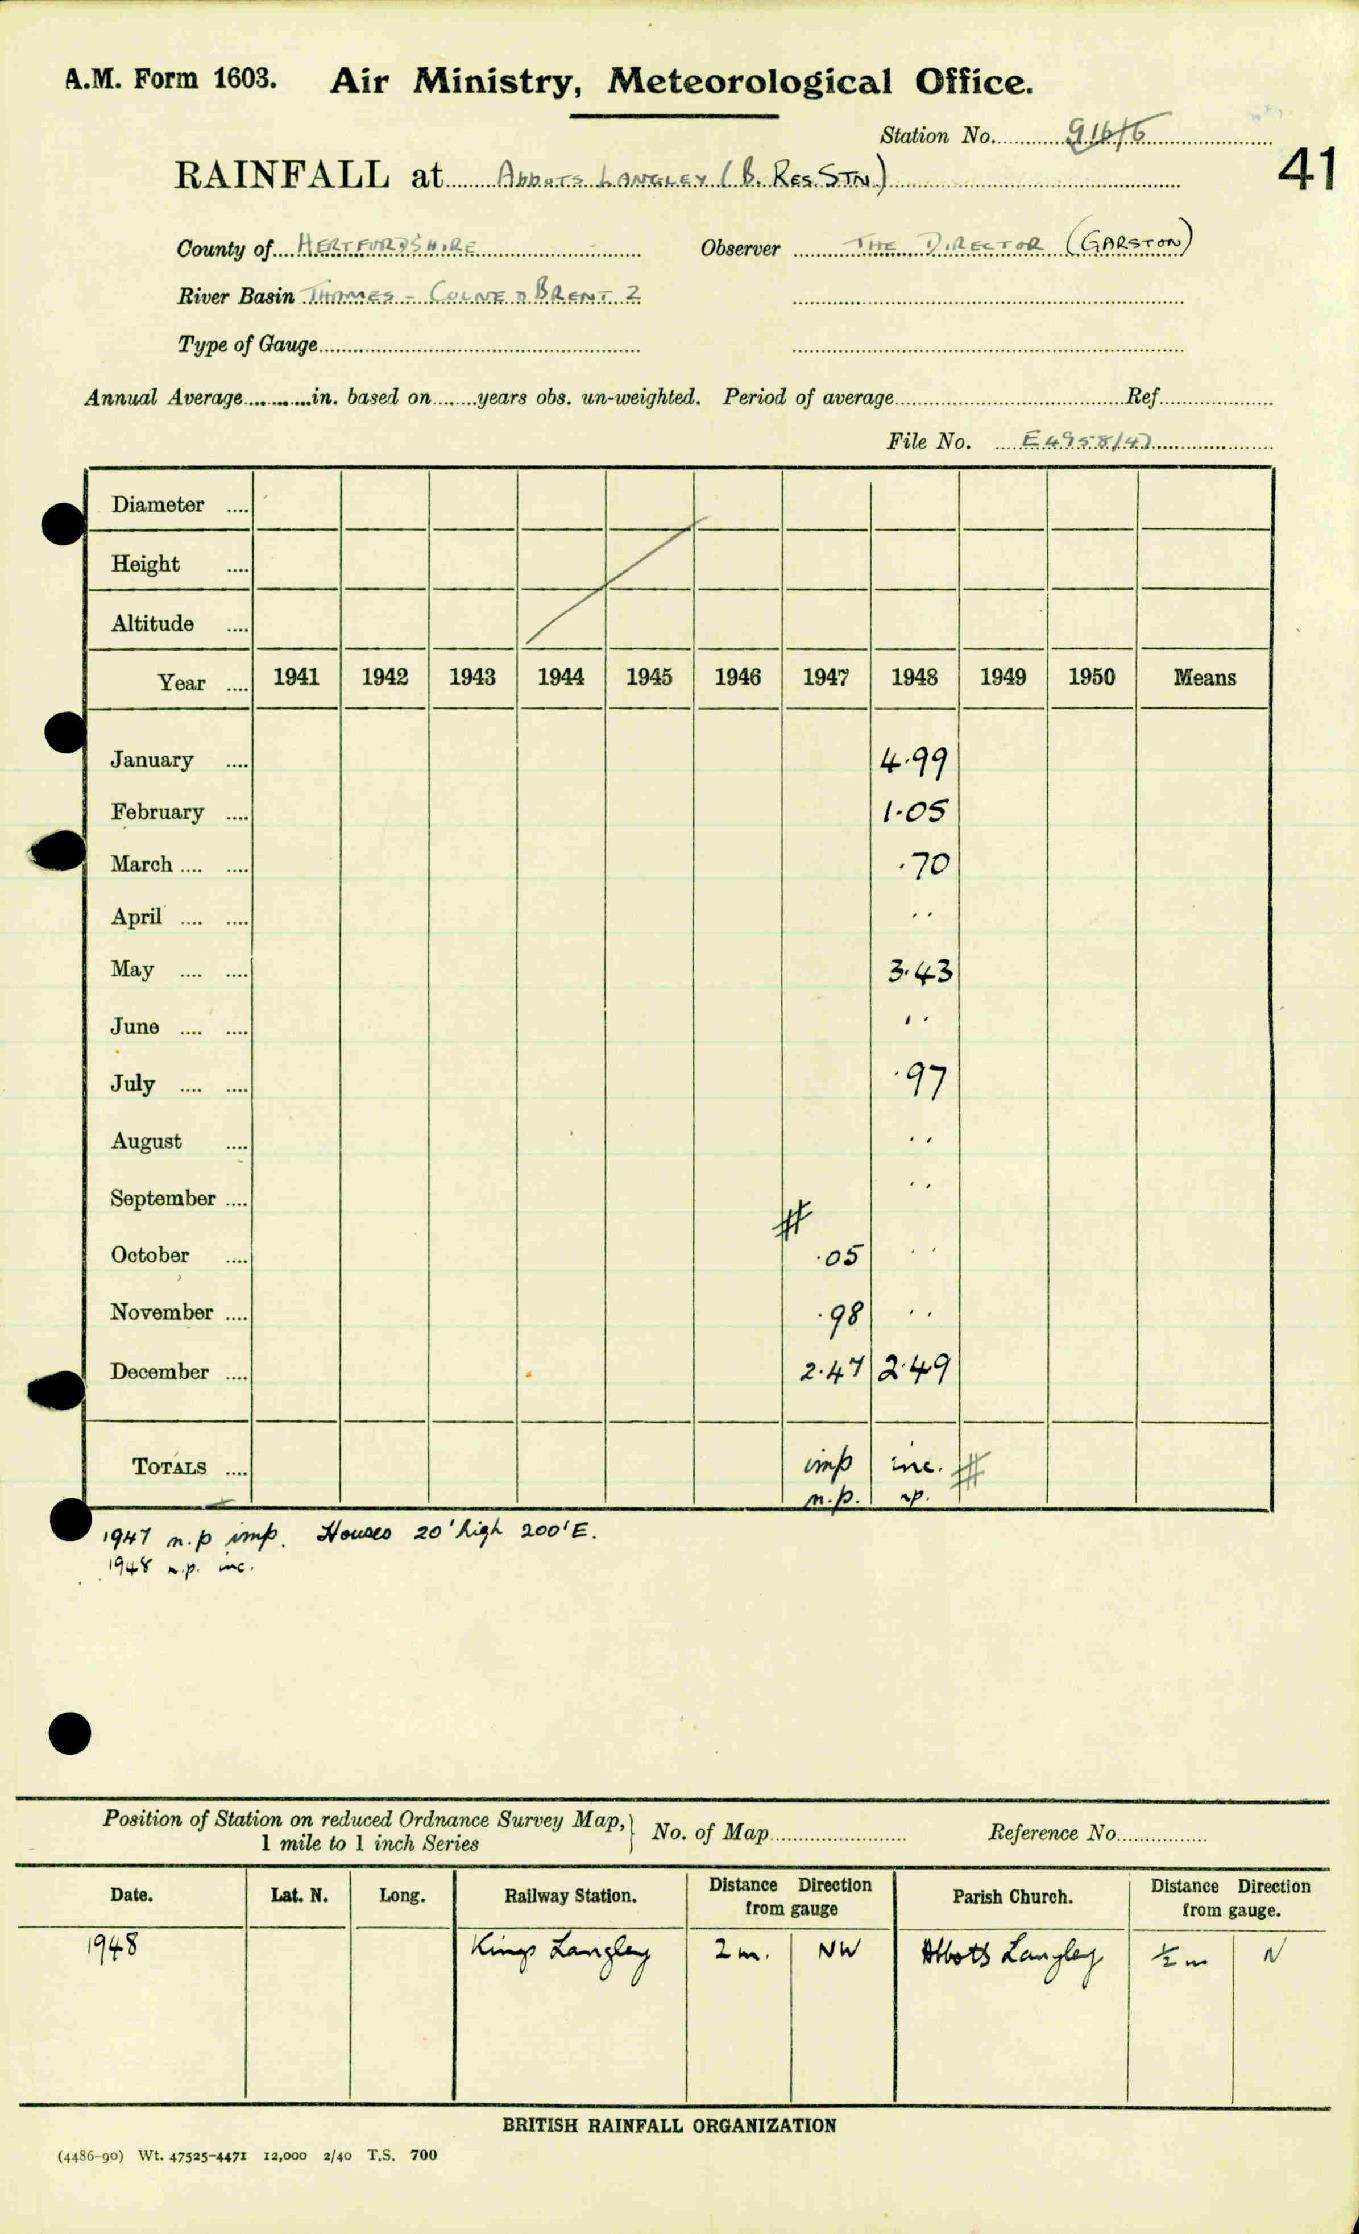 A.M. Form 1603. Air Ministry, Meteorological Office.
Station No. 916/6
41
RAINFALL at Abbots Langley (B. Res. Stn.)
County of HERTFORDSHIRE Observer THE DIRECTOR (GARSTON)
River Basin THAMES - COLNE & BRENT 2
Type of Gauge
Annual Average in. based on years obs. un-weighted. Period of average Ref.
File No. E4958/47
Diameter
Height
Altitude
Year 1941 1942 1943 1944 1945 1946 1947 1948 1949 1950 Means
January 4.99
February 1.05
March .70
April ..
May 3.43
June ..
July .97
August ..
September ..
#
October .05 ..
November .98 ..
December 2.47 2.49
TOTALS imp inc. #
n.p. n.p.
1947 n.p imp. Houses 20' high 200' E.
1948 n.p. inc.
Position of Station on reduced Ordnance Survey Map, } No. of Map Reference No.
1 mile to 1 inch Series
Date. Lat. N. Long. Railway Station. Distance Direction from gauge Parish Church. Distance Direction from gauge.
1948 Kings Langley 2 m. NW Abbots Langley ½ m N
BRITISH RAINFALL ORGANIZATION
(4486-90) Wt. 47525-4471 12,000 2/40 T.S. 700